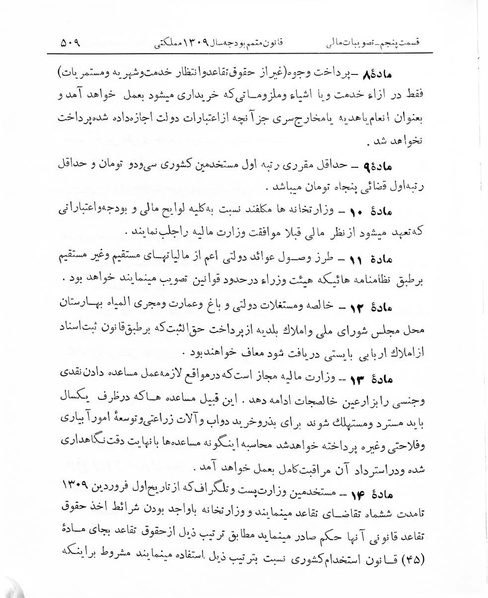 قسمت پنجم ـ تصویبات مالی قانون متمم بودجه سال ۱۳۰۹ مملکتی ۵۰۹
مادهٔ ۸ ـ پرداخت وجوه (غیر از حقوق تقاعد و انتظار خدمت و شهریه و مستمریات)
فقط در ازاء خدمت و یا اشیاء و ملزوماتی که خریداری میشود بعمل خواهد آمد و
بعنوان انعام یا هدیه یا مخارج سری جز آنچه از اعتبارات دولت اجازه داده شده پرداخت
نخواهد شد.
مادهٔ ۹ ـ حداقل مقرری رتبه اول مستخدمین کشوری سی و دو تومان و حداقل
رتبه اول قضائی پنجاه تومان میباشد.
مادهٔ ۱۰ ـ وزارتخانه ها مکلفند نسبت به کلیه لوایح مالی و بودجه و اعتباراتی
که تعهد میشود از نظر مالی قبلا موافقت وزارت مالیه را جلب نمایند.
مادهٔ ۱۱ ـ طرز وصول عوائد دولتی اعم از مالیاتهای مستقیم و غیر مستقیم
بر طبق نظامنامه هائیکه هیئت وزراء در حدود قوانین تصویب مینمایند خواهد بود.
مادهٔ ۱۲ ـ خالصه و مستغلات دولتی و باغ و عمارت و مجری المیاه بهارستان
محل مجلس شورای ملی و املاک بلدیه از پرداخت حق الثبت که بر طبق قانون ثبت اسناد
از املاک اربابی بایستی دریافت شود معاف خواهند بود.
مادهٔ ۱۳ ـ وزارت مالیه مجاز است که در مواقع لازمه عمل مساعده دادن نقدی
و جنسی را بزارعین خالصجات ادامه دهد. این قبیل مساعده ها که در ظرف یکسال
باید مسترد و مستهلک شوند برای بذر و خرید دواب و آلات زراعتی و توسعهٔ امور آبیاری
و فلاحتی و غیره پرداخته خواهد شد محاسبه اینگونه مساعده ها با نهایت دقت نگاهداری
شده و در استرداد آن مراقبت کامل بعمل خواهد آمد.
مادهٔ ۱۴ ـ مستخدمین وزارت پست و تلگراف که از تاریخ اول فروردین ۱۳۰۹
تا مدت ششماه تقاضای تقاعد مینمایند و وزارتخانه با واجد بودن شرائط اخذ حقوق
تقاعد قانونی آنها حکم صادر مینماید مطابق ترتیب ذیل از حقوق تقاعد بجای مادهٔ
(۴۵) قانون استخدام کشوری نسبت بترتیب ذیل استفاده مینمایند مشروط بر اینکه